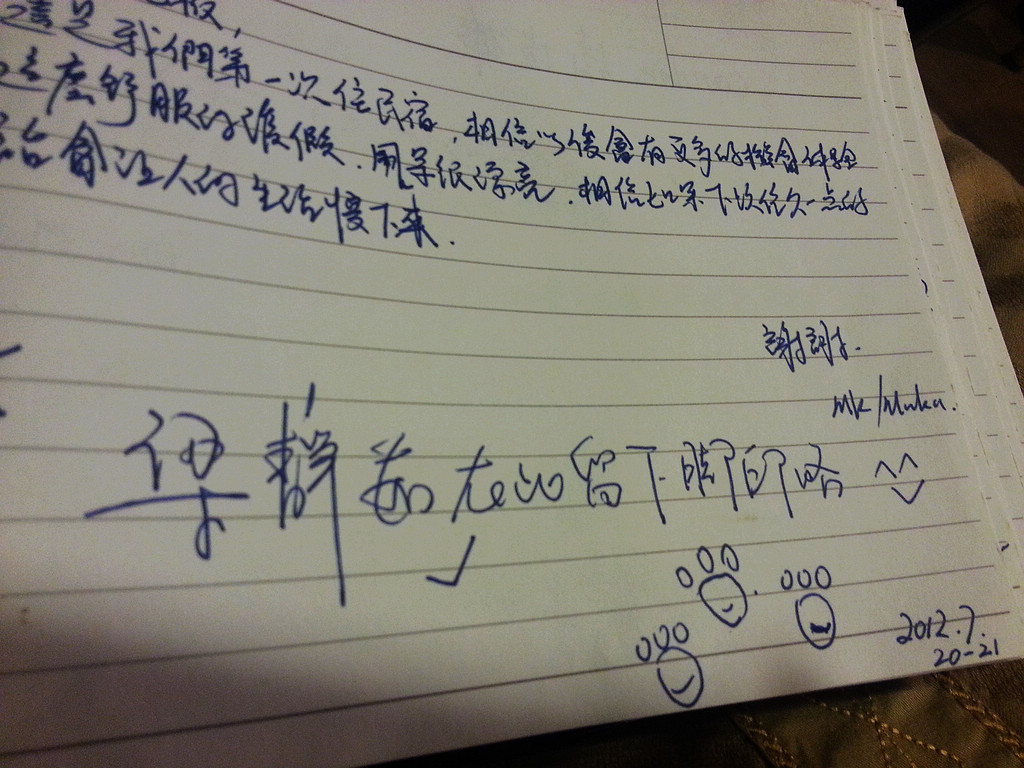 這是我們第一次住民宿，相信以後會有更多的機會体驗
這麼舒服的渡假．風景很漂亮．相信如果下次住久一点的
話會让人的生活慢下來．
謝謝．
MK/Muka.
在心留下腳印咯 ^^
2012.7.
20-21